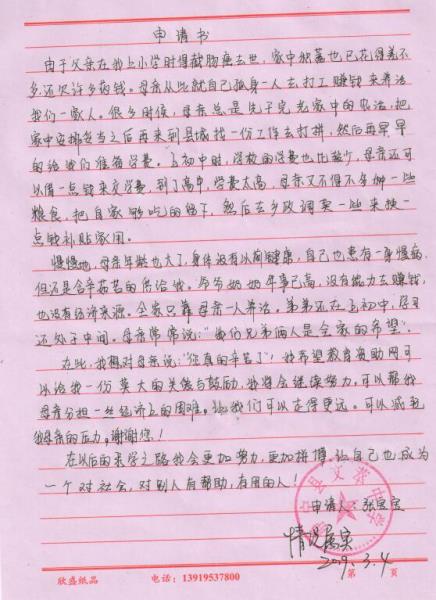 申请书
由于父亲在我上小学时得截肠癌去世,家中积蓄也已花得差不
多,还欠许多药钱。母亲从此就自己孤身一人去打工赚钱来养活
我们一家人。很多时候,母亲总是先干完老家中的农活,把
家中安排妥当之后再来到县城找一份工作去打拼,然后再早早
的给我们准备学费。上初中时,学校的学费也比较少,母亲还可
以借一点钱来交学费,到了高中,学费太高,母亲又不得不多种一些
粮食,把自家够吃的留下,然后去乡政调卖一些来换一
点钱补贴家用。
慢慢地,母亲年龄也大了,身体没有以前健康,自己也患有一身慢病,
但还是含辛茹苦的供给我。爷爷奶奶年事已高,没有能力去赚钱,
也没有经济来源。全家只靠母亲一人养活。弟弟还在上初中,
还处于中间。母亲常常说:“我们兄弟俩人是全家的希望”。
在此,我想对母亲说:“您真的辛苦了”,我希望教育资助网可
以给我一份莫大的关爱与鼓励,我将会继续努力,可以帮我
母亲分担一丝经济上的困难,让我们可以走得更远。可以减轻
我母亲的压力,谢谢您!
在以后的求学之路我会更加努力,更加拼搏,让自己也成为
一个对社会,对别人有帮助,有用的人!
申请人:张宝宝
情况属实
2019.3.4
欣盛纸品 电话:13919537800 第 页